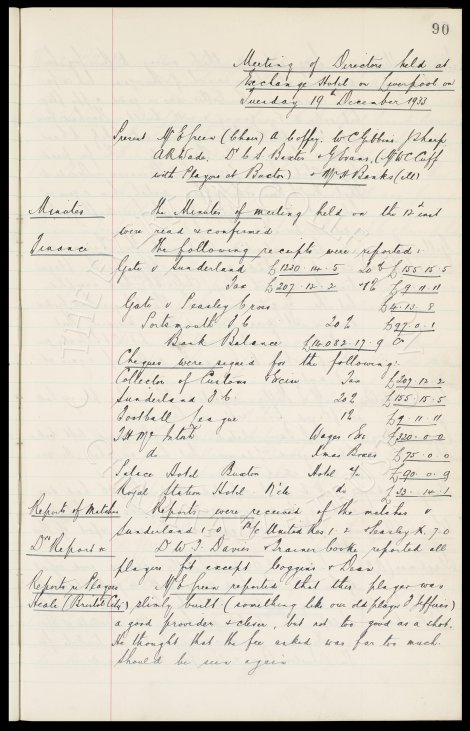 90
Meeting of Directors held at
Exchange Hotel on Liverpool on
Tuesday 19th December 1933
Present Mr E Green (Chair) A Coffey W C Gibbins J Sharp
A R Wade, Dr C S Baxter & J Evans, (Mr W C Cuff
with Players at Buxton) & Mr H Banks (ill)
Minutes The Minutes of meeting held on the 12th inst
were read & confirmed
Finance The following receipts were reported:
Gate v Sunderland £1220.14.5 20% £155.15.5
Tax £207.12.2 1% £9.11.11
Gate v Peasley Cross £4.13.8
Portsmouth F C 20% £97.0.1
Bank Balance £14082.17.9
Cheques were signed for the following:
Collector of Customs & Excise Tax £207.12.2
Sunderland F C 20% £155.15.5
Football League 1% £9.11.11
T H McIntosh Wages &c £320.0.0
do Xmas Boxes £75.0.0
Palace Hotel Buxton Hotel a/c £90.0.9
Royal Station Hotel N'cle do £33.14.1
Reports of Matches Reports were received of the matches v
Sunderland 1-0 M/c United Res 1-2 & 7-0
Drs Report &c Dr W J Davies & Trainer Cooke reported all
players fit except Coggins & Dean
Reports re Players Mr E Green reported that this player was
(Bristol City) slimly built (something like our old player J Jefferis)
a good provider & clever, but not too good as a shot.
He thought that the fee asked was far too much.
Should be seen again